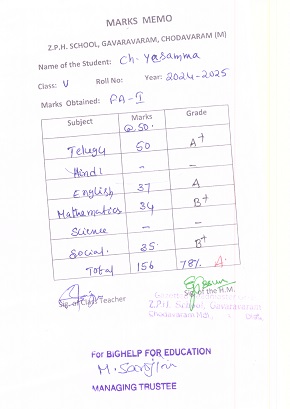 MARKS MEMO
Z.P.H. SCHOOL, GAVARAVARAM, CHODAVARAM (M)
Name of the Student: Ch. Yesamma
Class: V Roll No: Year: 2024-2025
Marks Obtained: PA-I
Subject Marks Grade
@50.
Telugu 50 A+
Hindi - -
English 37 A
Mathematics 34 B+
Science - -
Social. 35 B+
Total 156 78% A.
Sig. of Class Teacher Sig. of the H.M.
Z.P.H. School, Gavaravaram
Chodavaram
For BIGHELP FOR EDUCATION
M. Sarojini
MANAGING TRUSTEE